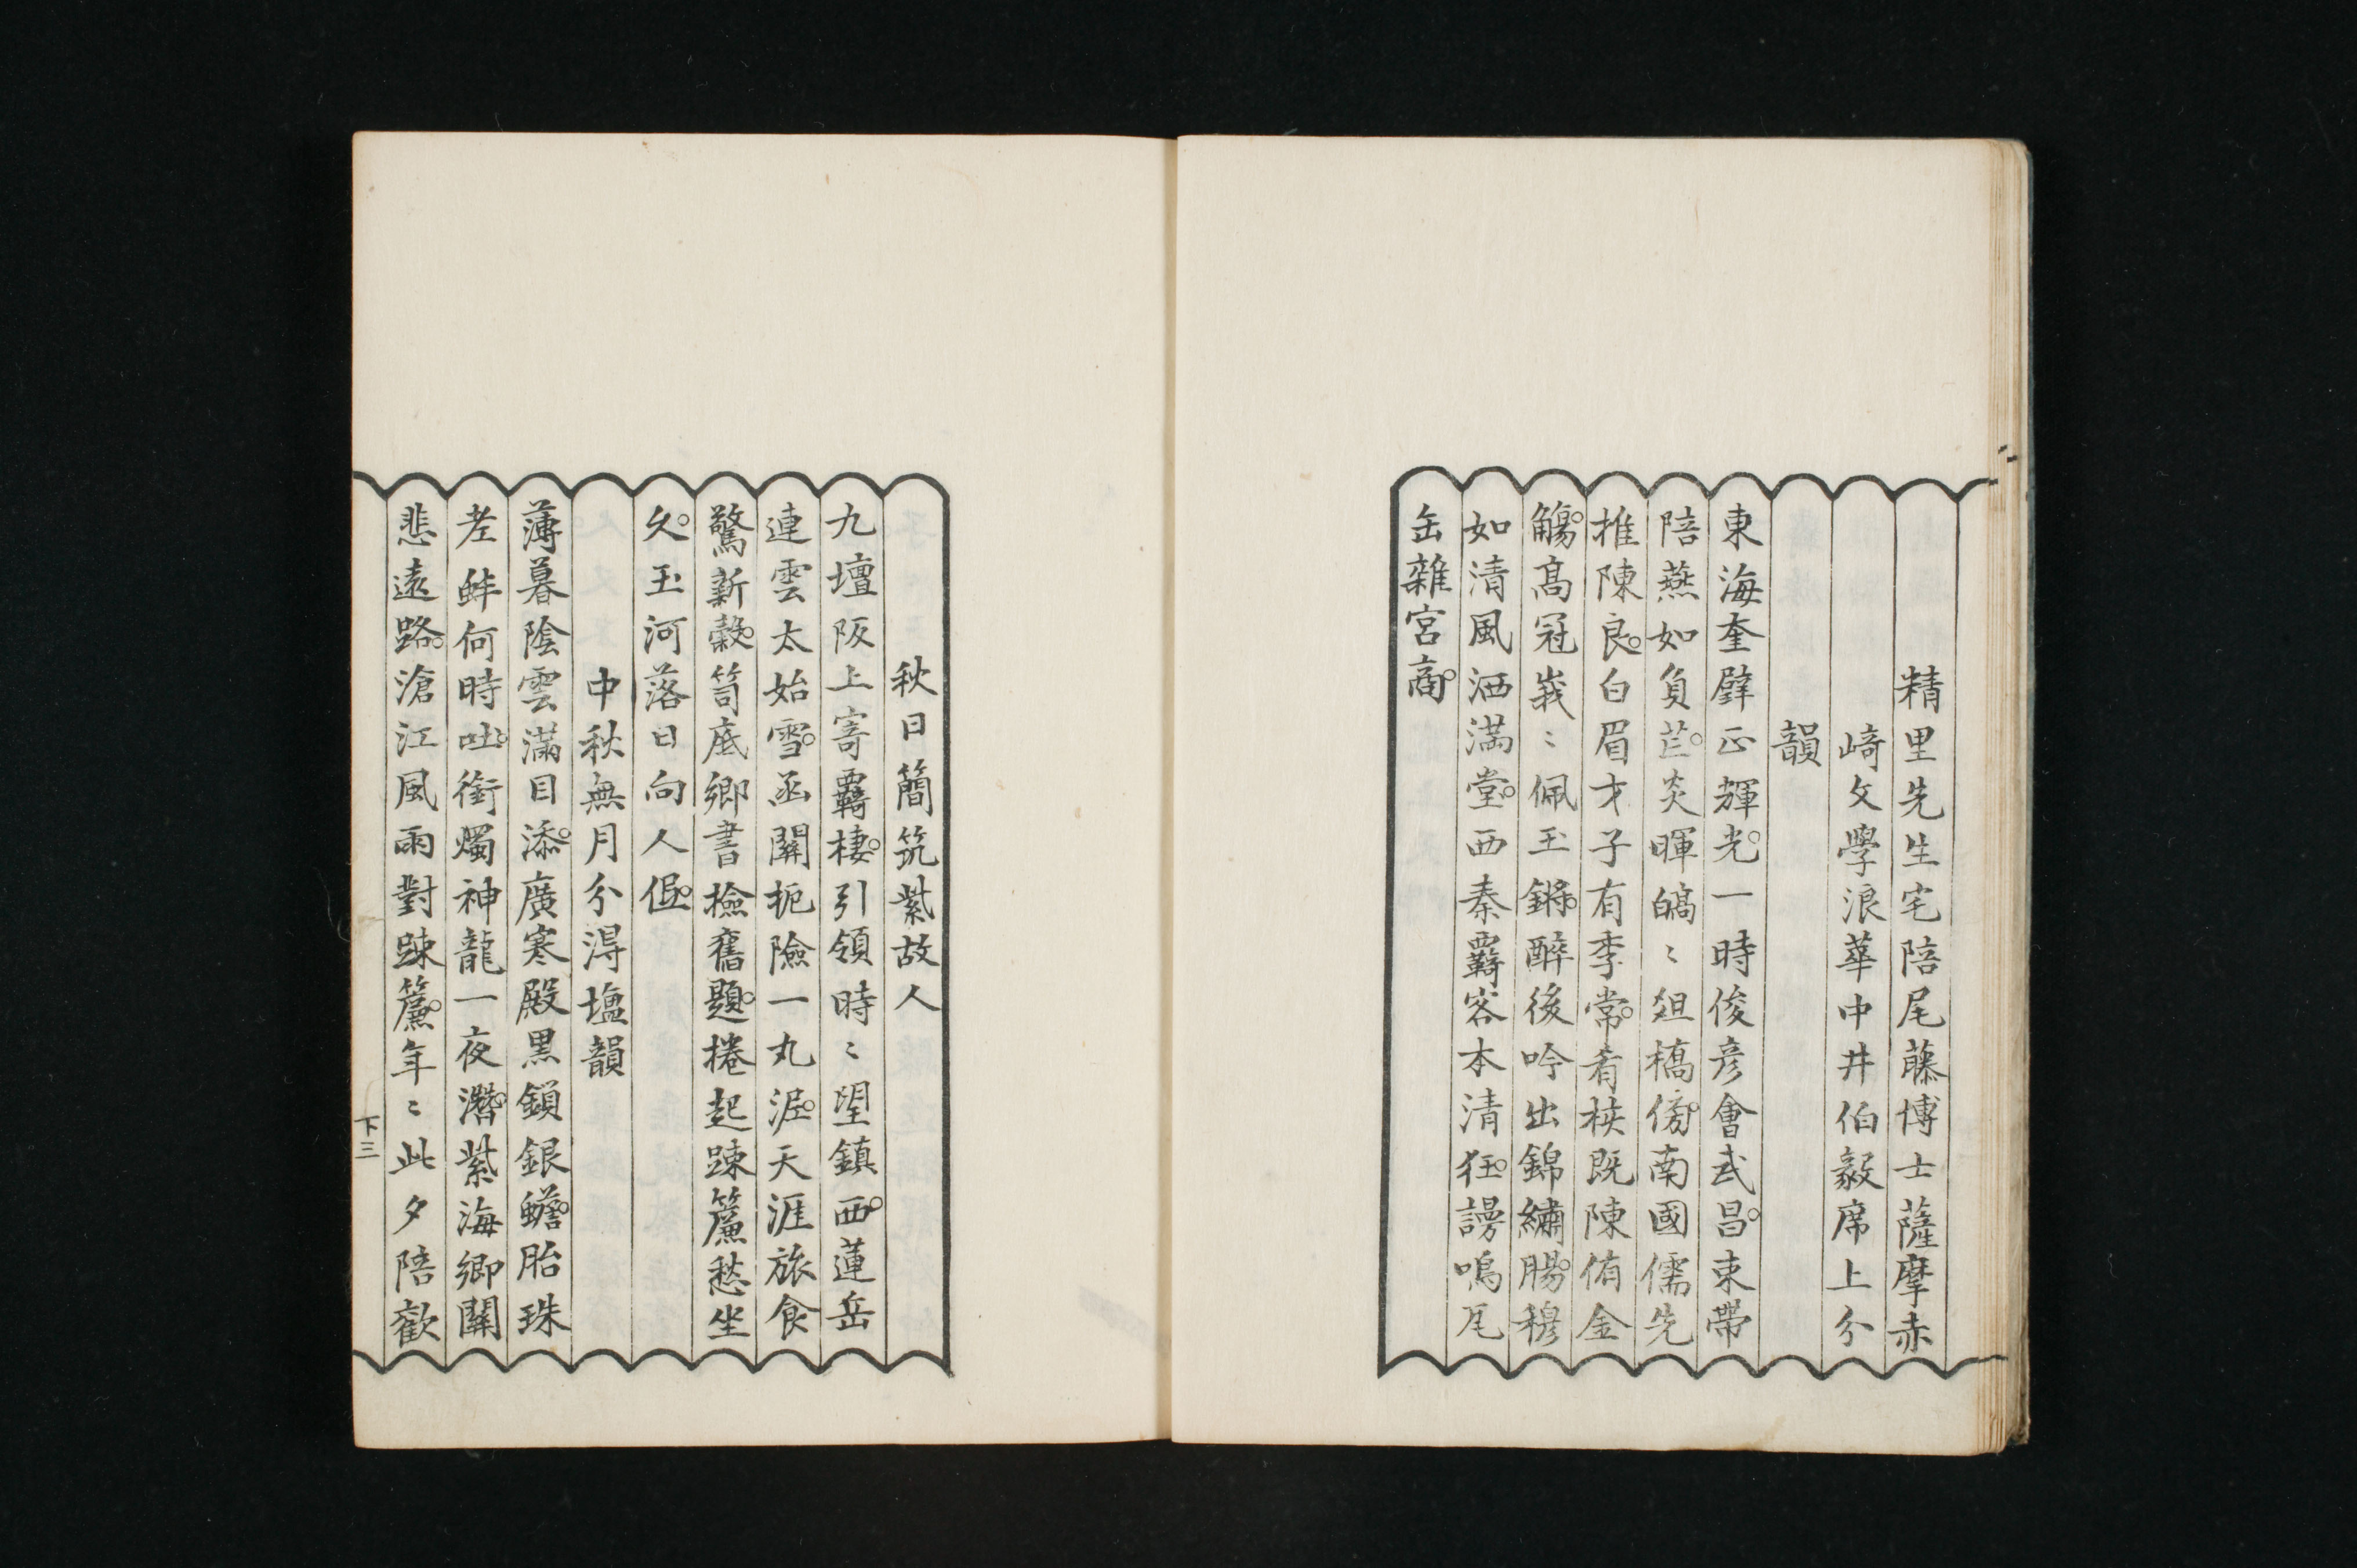 精里先生宅陪尾藤博士薩摩赤
崎文學浪華中井伯毅席上分
韻
東海奎璧正輝光。一時俊彦會武昌。束帶
陪燕如負芒。炎暉皜〻爼橋傍。南國儒先
推陳良。白眉才子有季常。肴核既陳侑金
觴。高冠峩〻佩玉鏘。醉後吟出錦繡腸。穆
如清風洒満堂。西秦覊客本清狂。謾鳴瓦
缶雜宮商。
秋日簡筑紫故人
九壇阪上寄覊棲。引領時〻望鎮西。蓮岳
連雲太始雪。函關扼險一丸泥。天涯旅食
驚新穀。笥底鄉書撿舊題。捲起踈簾愁坐
久。玉河落日向人低。
中秋無月分得塩韻
薄暮陰雲滿目添。廣寒殿黒鎖銀蟾。胎珠
老蚌何時吐。銜燭神龍一夜潛。紫海鄉關
悲遠路。滄江風雨對踈簾。年〻此夕陪歡
下三